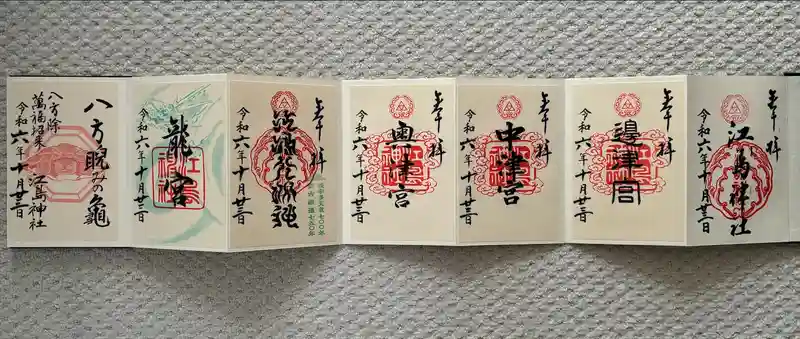 奉拝
江島神社
令和六年十月廿三日
邊津宮
令和六年十月廿三日
奉拝
中津宮
令和六年十月廿三日
奉拝
奥津宮
令和六年十月廿三日
奉拝
令和六年十月廿三日
龍宮
令和六年十月廿三日
八方睨みの龜
八方除
萬福招来
江島神社
令和六年十月廿三日